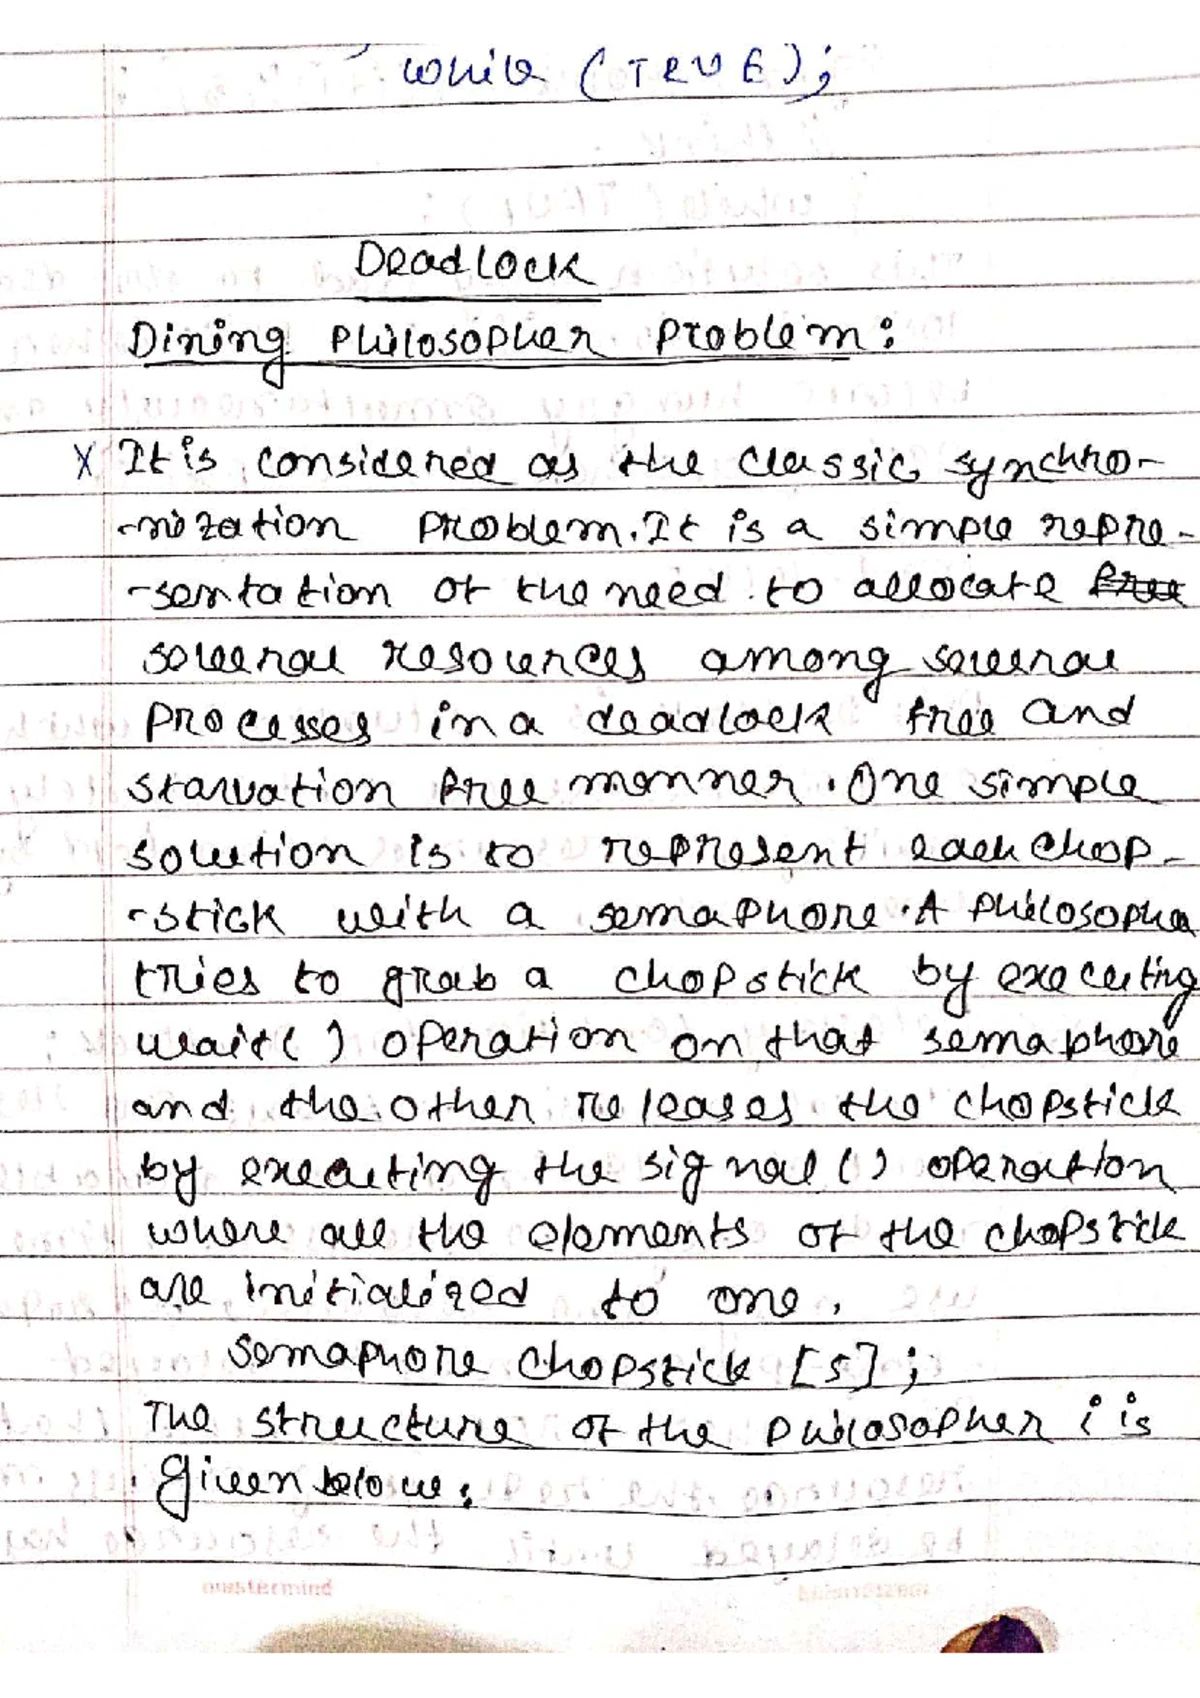 while (TRUE);
Deadlock
Dining Philosopher Problem:
X It is considered as the classic synchro-
-nization problem. It is a simple repre-
-sentation of the need to allocate free
several resources among several
processes in a deadlock free and
starvation free manner. One simple
solution is to represent each chop-
-stick with a semaphore. A philosopher
tries to grab a chopstick by executing
wait( ) operation on that semaphore
and the other releases the chopstick
by executing the signal( ) operation
where all the elements of the chopstick
are initialized to one.
semaphore chopstick [5];
The structure of the philosopher i is
given below: